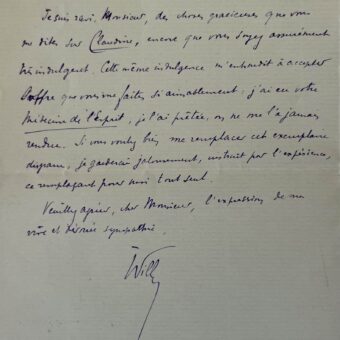 Je suis ravi, Monsieur, des choses gracieuses que vous
me dites sur Claudine, encore que vous soyez assurément
très indulgent. Cette même indulgence m'enhardit à accepter
l'offre que vous me faites si aimablement : j'ai eu votre
Médecine de l'Esprit, je l'ai prêtée, on ne me l'a jamais
rendue. Si vous voulez bien me remplacer cet exemplaire
disparu, je garderai jalousement, instruit par l'expérience,
ce remplaçant pour moi tout seul.
Veuillez agréer, cher Monsieur, l'expression de ma
vive et dévouée sympathie.
Willy